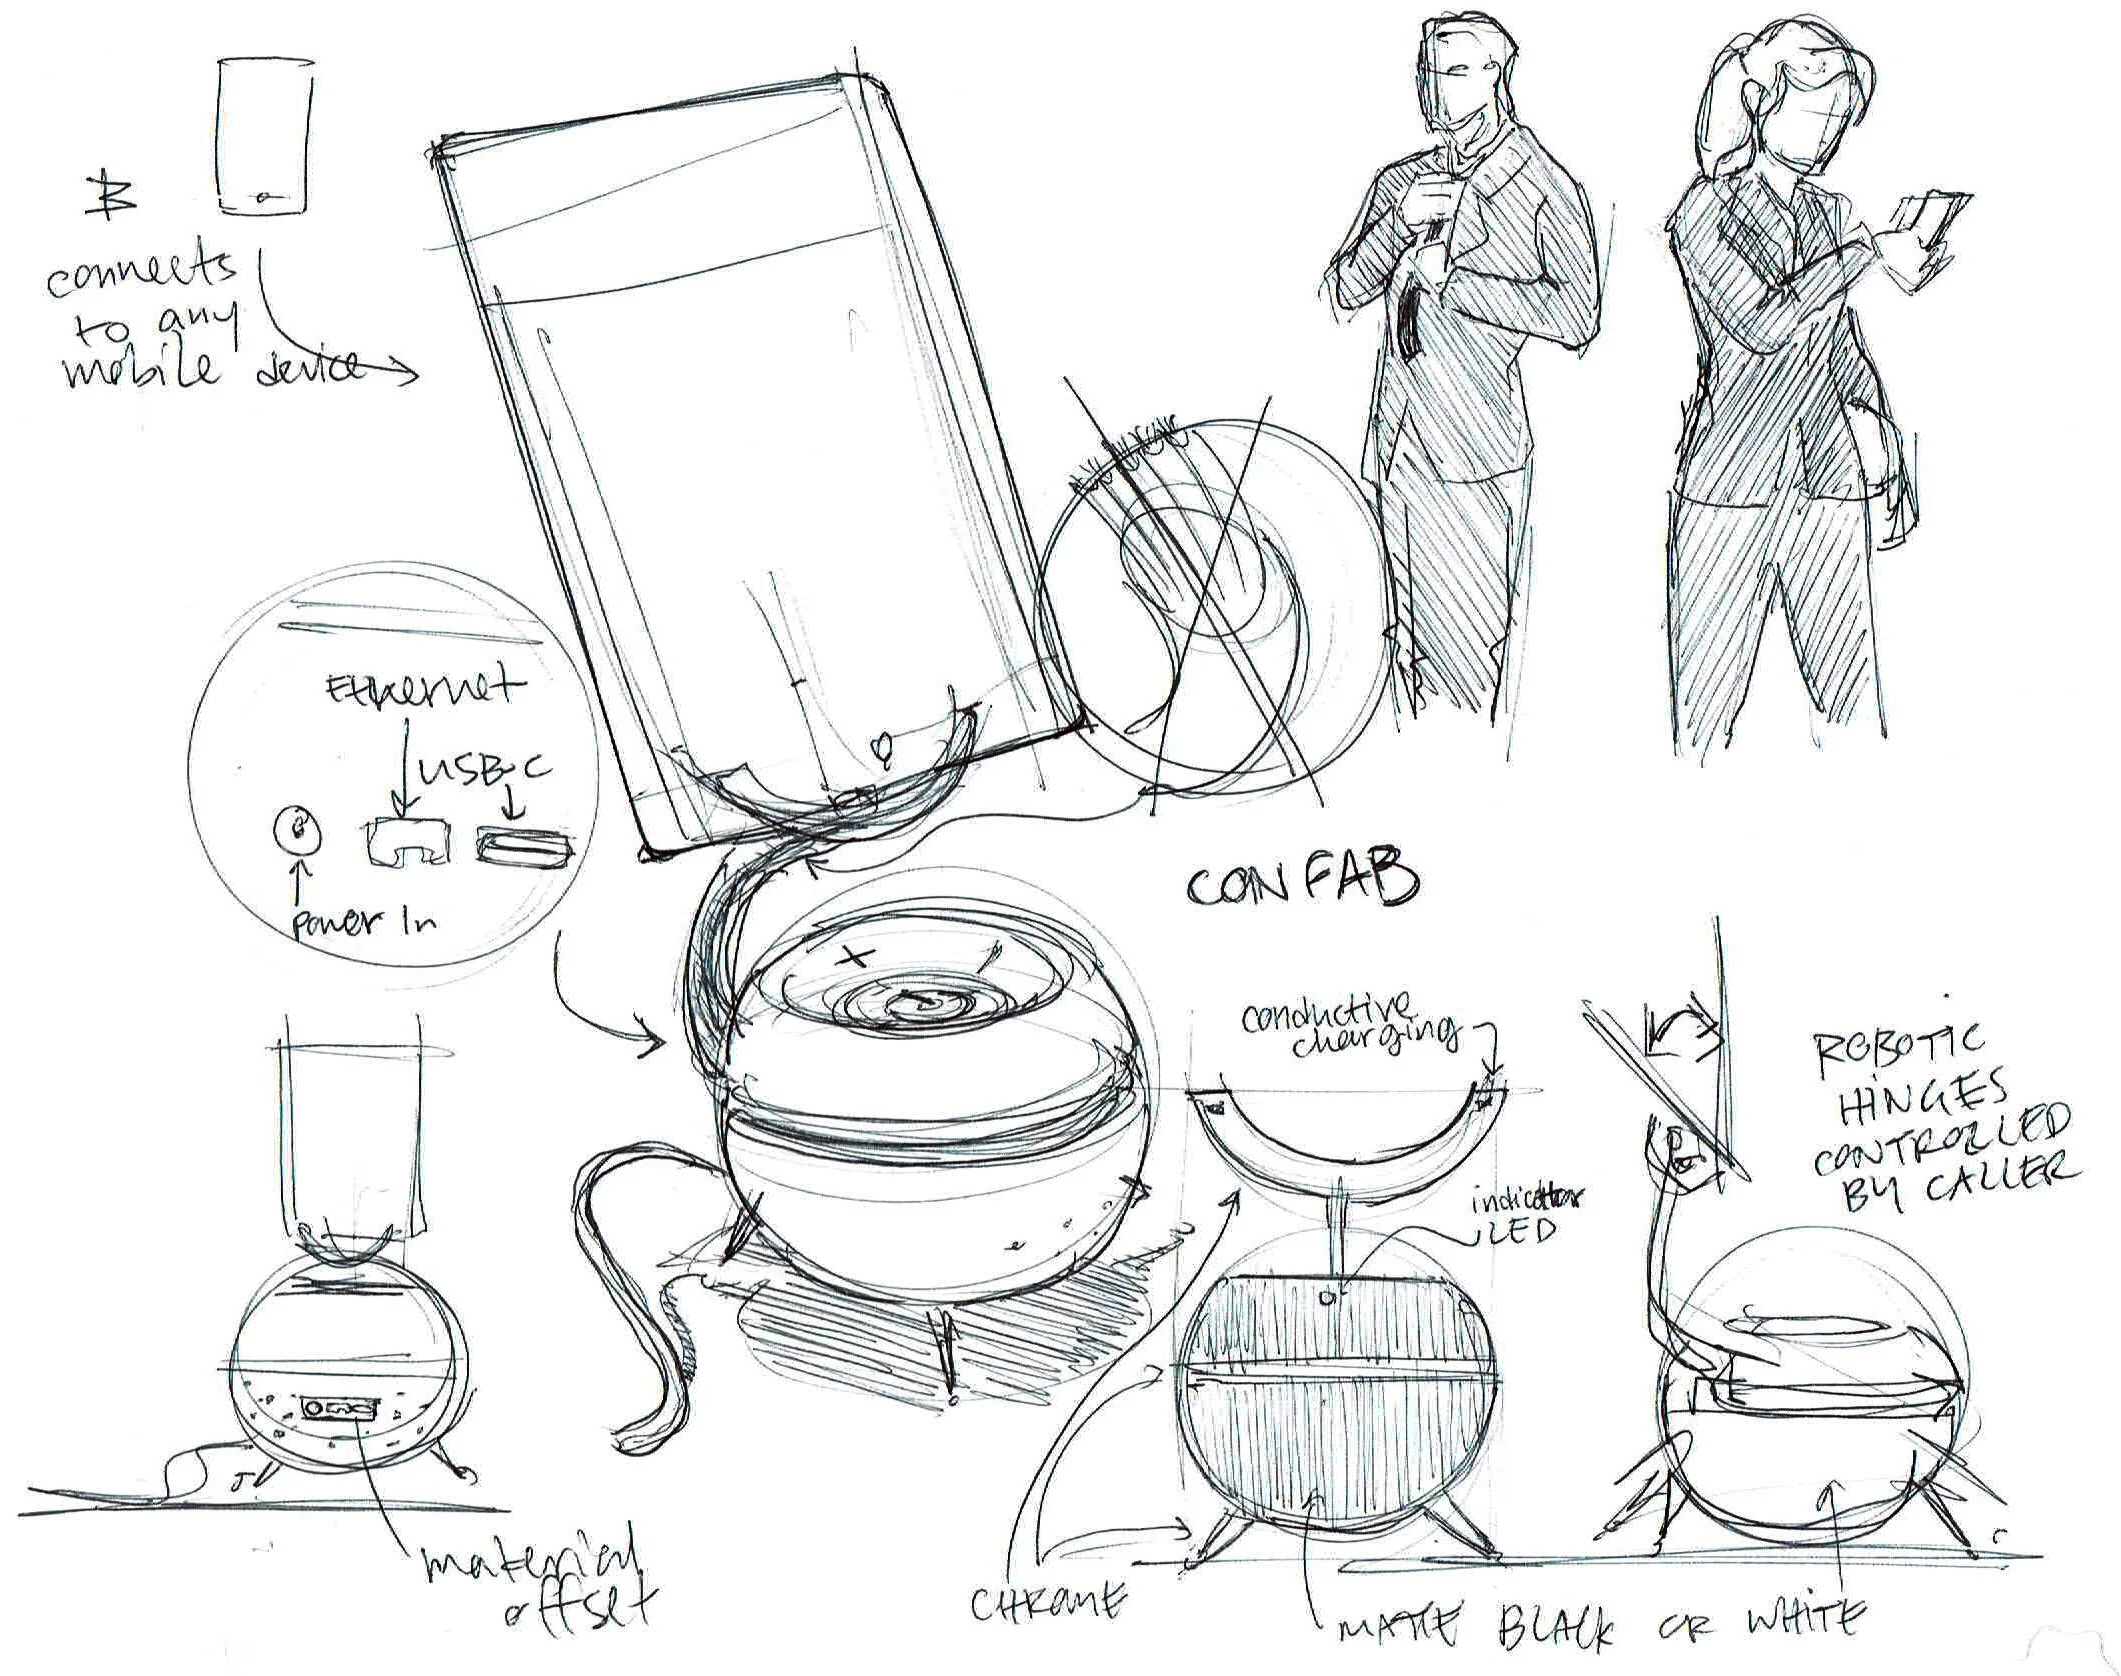 connects
to any
mobile device
Ethernet
USB-C
power In
CONFAB
conductive
charging
indicator
LED
ROBOTIC
HINGES
CONTROLLED
BY CALLER
material
offset
CHROME
MATTE BLACK OR WHITE